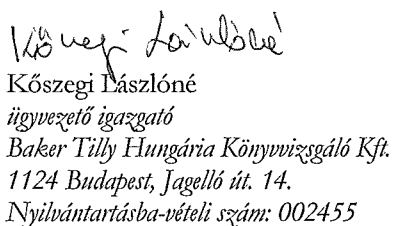 Kőszegi Lászlóné
Kőszegi Lászlóné
ügyvezető igazgató
Baker Tilly Hungária Könyvvizsgáló Kft.
1124 Budapest, Jagelló út. 14.
Nyilvántartásba-vételi szám: 002455